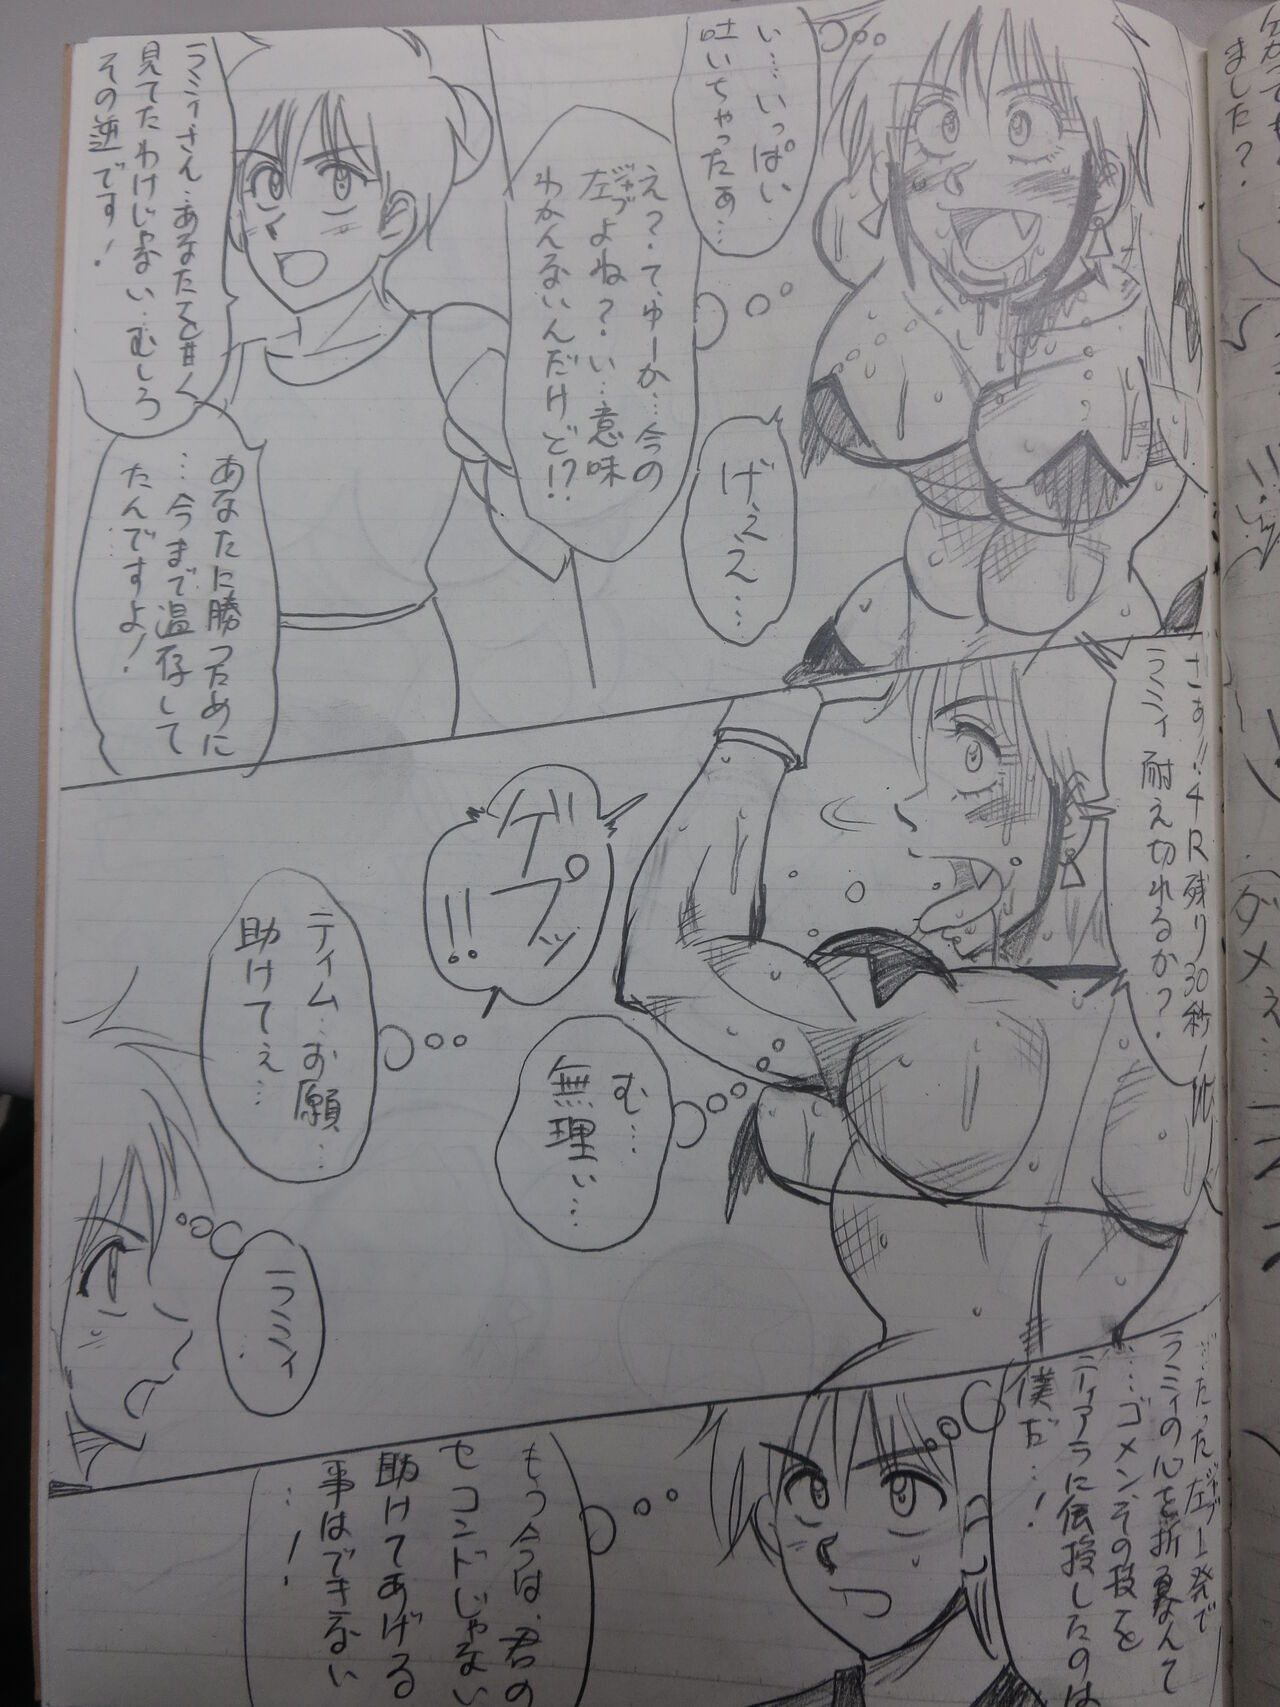 い…いっぱい
吐いちゃったぁ…
え?・て、ゅーか…今の
左ジャブよね?・い…意味
わかんないんだけど!?
げぇえ…
ラミィさん…あなたを甘く
見てたわけじゃない…むしろ
その逆です!
あなたに勝つために
…今まで温存して
たんですよ!
さぁ!!4R残り30秒!
ラミィ耐え切れるか?・
ゲプッ!!
む…
無理ぃ…
ティム…お願…
助けてぇ…
ラミィ
…たった左ジャブ一発で
ラミィの心を折るなんて
…ゴメンその技を
ティアラに伝授したのは
僕だ…!
もう今は、君の
セコンドじゃない
助けてあげる
事はできない
…!
ました?
ダメぇ…